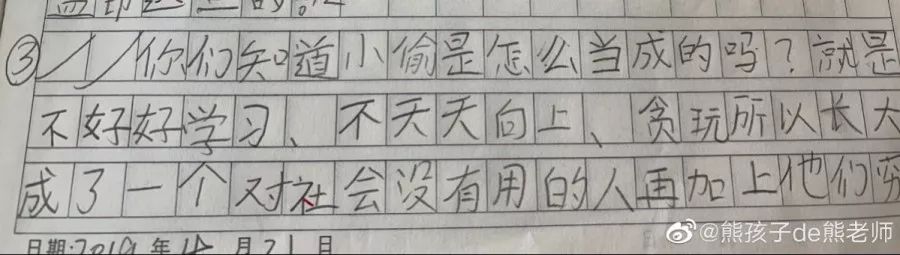 ③你们知道小偷是怎么当成的吗？就是
不好好学习、不天天向上、贪玩所以长大
成了一个对社会没有用的人再加上他们穷
日期:2019年 月21日
@熊孩子de熊老师